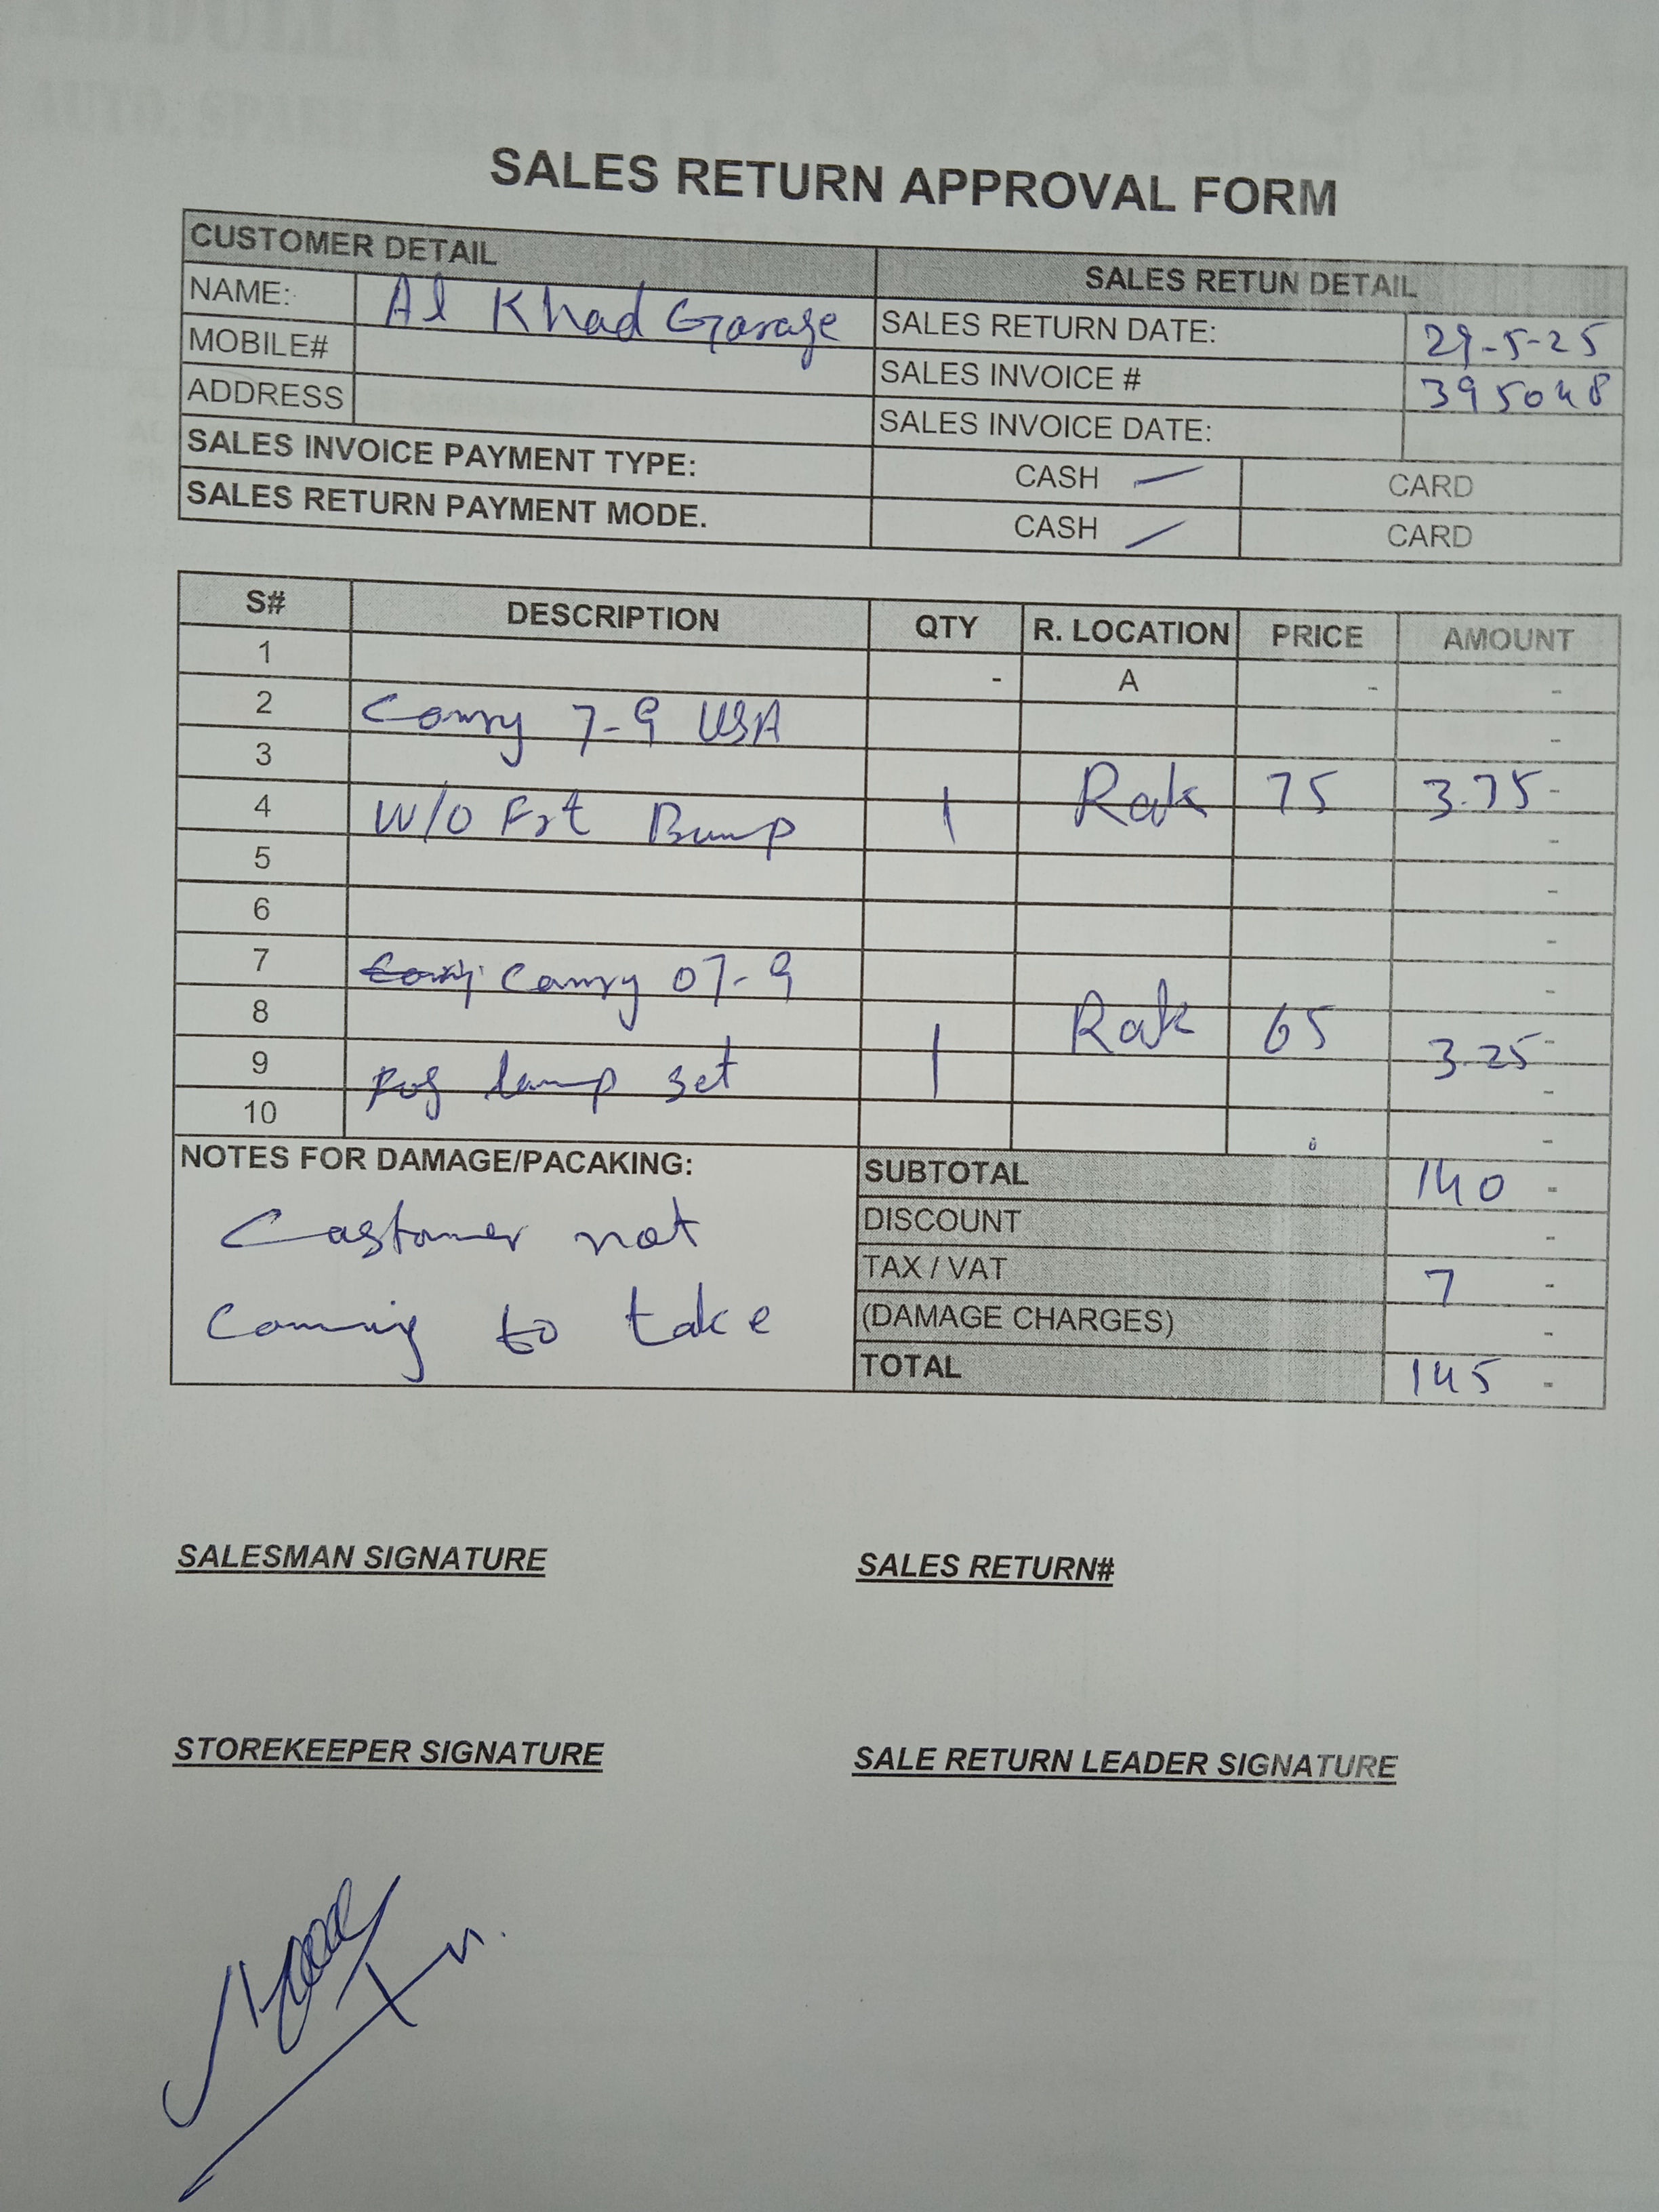 SALES RETURN APPROVAL FORM
CUSTOMER DETAIL SALES RETUN DETAIL
NAME: Al Khad Garage SALES RETURN DATE: 29-5-25
MOBILE# SALES INVOICE # 395048
ADDRESS SALES INVOICE DATE:
SALES INVOICE PAYMENT TYPE: CASH — CARD
SALES RETURN PAYMENT MODE. CASH — CARD
S# DESCRIPTION QTY R. LOCATION PRICE AMOUNT
1 - A - -
2 Camry 7-9 USA -
3 Rak 75 3.75 -
4 W/O Frt Bump 1 -
5 -
6 -
7 Camry 07-9 -
8 Rak 65 3.25 -
9 Fog lamp set 1 -
10 -
NOTES FOR DAMAGE/PACAKING:
Customer not
coming to take
SUBTOTAL 140 -
DISCOUNT -
TAX / VAT 7 -
(DAMAGE CHARGES) -
TOTAL 145 -
SALESMAN SIGNATURE SALES RETURN#
STOREKEEPER SIGNATURE SALE RETURN LEADER SIGNATURE